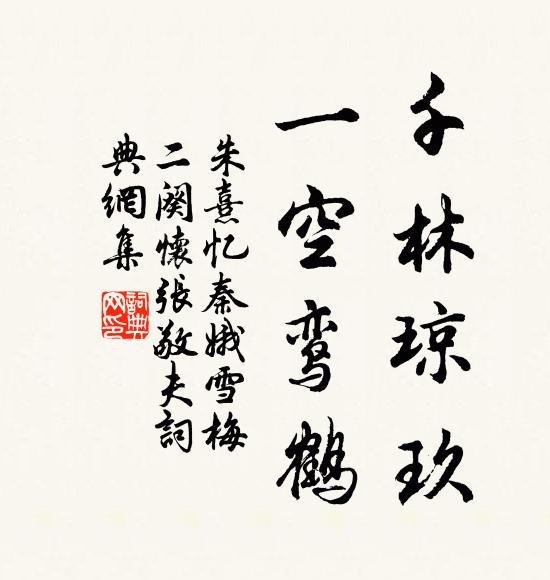 千林琼玖
一空鸾鹤
朱熹忆秦娥雪梅
二阕懷張敬夫詞
典網集
詞典网印